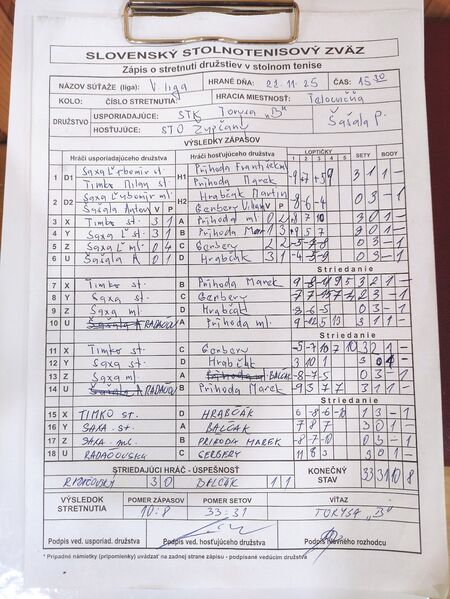 SLOVENSKÝ STOLNOTENISOVÝ ZVÄZ
Zápis o stretnutí družstiev v stolnom tenise
NÁZOV SÚŤAŽE (liga): V liga HRANÉ DŇA: 22.11.25 ČAS: 15 30
KOLO: ČÍSLO STRETNUTIA: HRACIA MIESTNOSŤ:
DRUŽSTVO USPORIADAJÚCE: STK Torysa "B" Šašala P.
HOSŤUJÚCE: STO
VÝSLEDKY ZÁPASOV
Hráči usporiadajúceho družstva Hráči hosťujúceho družstva LOPTIČKY 1 2 3 4 5 SETY BODY
1 D1 H1 3 1 1 -
Timko Milan st. Príhoda Marek
2 D2 Saxa Ľubomír ml. H2 Hrabčák Martin 0 3 - 1
Šašala Antony V P Gerbery V P
3 X Timko st. 3 1 A Príhoda ml.
4 Y Saxa Ľ st. 3 1 B Príhoda Mar
5 Z Saxa Ľ ml. 0 4 C Gerbery 2 2 0 3 - 1
6 U Šašala A 0 1 D Hrabčák 3 1 -4 -5 -9 0 3 - 1
Striedanie
7 X Timko st. B Príhoda Marek 3 2 1 -
8 Y Saxa st. C Gerbery 2 3 - 1
9 Z Saxa ml. D Hrabčák -8 -6 -5 0 3 - 1
10 U A Príhoda ml. 9 -12 5 13 3 1 1 -
Striedanie
11 X Timko st. C Gerbery -5 -7 10 7 10 3 2 1 -
12 Y Saxa st. D Hrabčák 3 10 1
13 Z Saxa ml. A BALČÁK -8 -7 -5 0 3 - 1
14 U B Príhoda Marek -9 3 7 7 3 1 1 -
Striedanie
15 X TIMKO st. D HRABČÁK 6 -8 -6 -10 1 3 - 1
16 Y SAXA st. A BALČÁK 7 8 7 3 0 1 -
17 Z SAXA ml. B PRÍHODA MAREK -8 -7 -10 0 3 - 1
18 U C GERBERY 11 8 3 3 0 1 -
STRIEDAJÚCI HRÁČ - ÚSPEŠNOSŤ KONEČNÝ STAV 33 31 10 8
3 0 BALČÁK 1 1
VÝSLEDOK STRETNUTIA POMER ZÁPASOV POMER SETOV VÍŤAZ
10:8 33:31 TORYSA "B"
Podpis ved. usporiad. druž. Podpis ved. hosťujúceho družstva Podpis hlavného rozhodcu
* Prípadné námietky (pripomienky) uvádzať na zadnej strane zápisu - podpísané vedúcim družstva